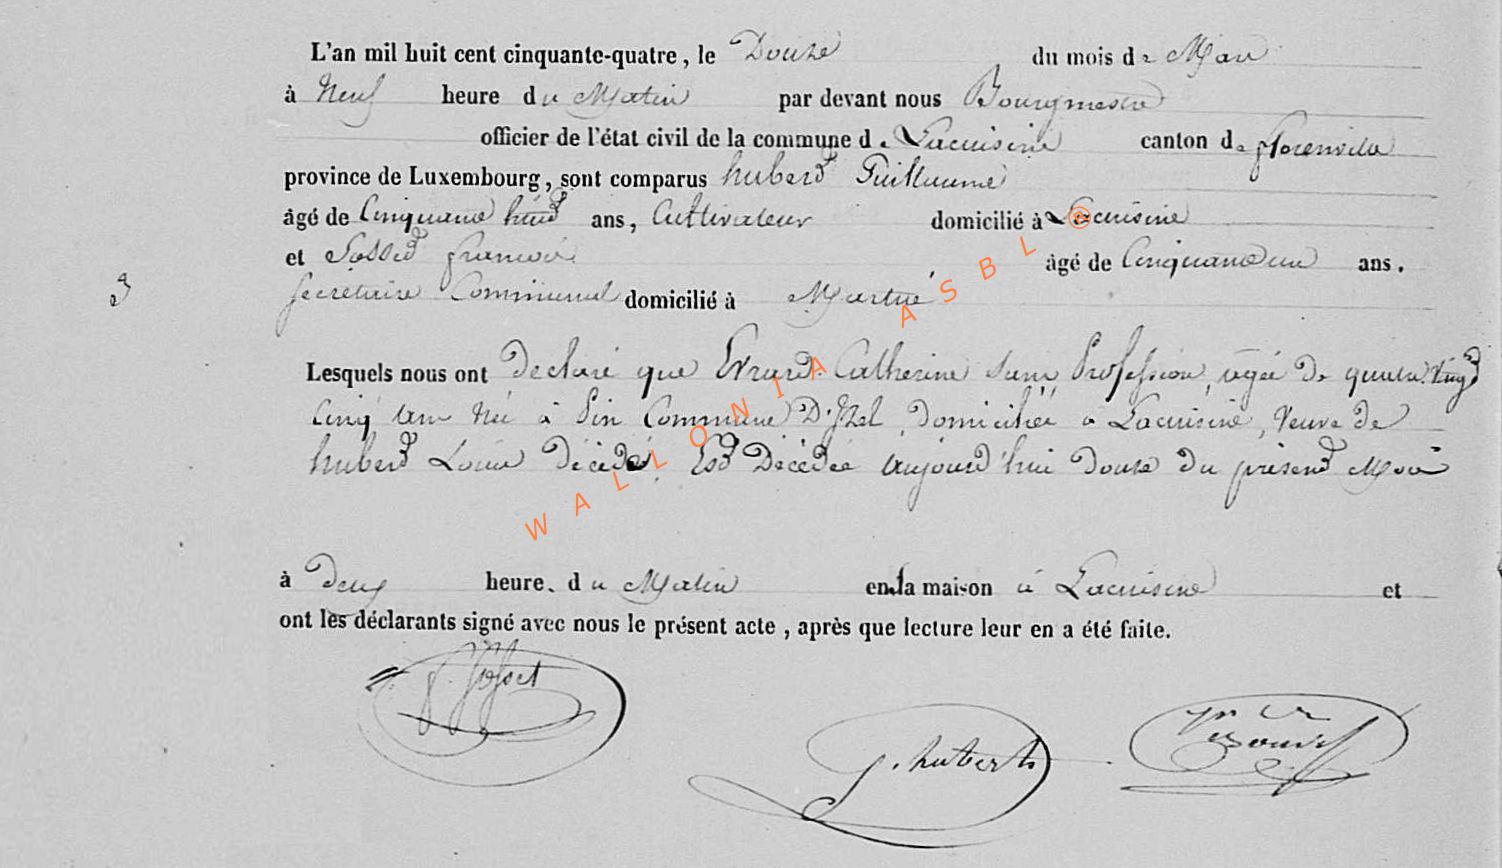 L'an mil huit cent cinquante-quatre, le Douze du mois de Mars
à Neuf heure du Matin par devant nous Bourgmestre
officier de l'état civil de la commune de Lacuisine canton de florenville
province de Luxembourg, sont comparus hubert Guillaume
âgé de Cinquante huit ans, Cultivateur domicilié à Lacuisine
et Josset françois âgé de Cinquante un ans.
3
secrétaire Communal domicilié à Martué
Lesquels nous ont declaré que Evrard Catherine sans Profession, agée de quatre Vingt
Cinq ans Née à Pin Commune D'Izel, domiciliée a Lacuisine, Veuve de
hubert Louis décédé, Est Décédée aujourd'hui douze du présent Mois
à deux heure. du Matin en la maison à Lacuisine et
ont les déclarants signé avec nous le présent acte, après que lecture leur en a été faite.
Josset
g. hubert
© WALLONIA ASBL